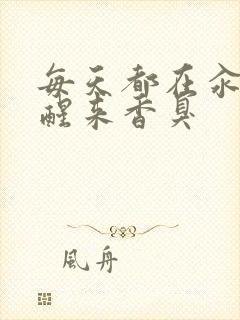 每天都在汆
醒来香臭
風舟